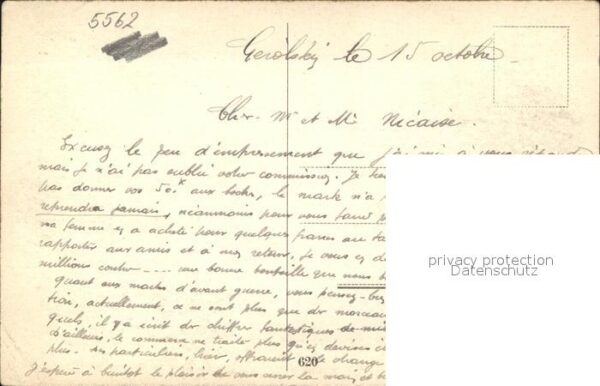 5562
Gerolstein le 15 octobre
Cher Mr et Me Nicaise.
Excusez le peu d'empressement que j'ai mis à vous répondre
mais je n'ai pas oublié votre commission. Je
pas donner vos 50 aux boches, le mark n'a
reprendra jamais, néanmoins pour vous faire
ma femme en a acheté pour quelques francs
rapporter aux amis et à mon retour, je vous en
millions contre .... une bonne bouteille que nous
Quant aux marks d'avant guerre, vous pensez
tion, actuellement, ce ne sont plus que des morceaux
quels, il y a écrit des chiffres fantastiques de
D'ailleurs, le commerce ne traite plus qu'en devises
plus. Des particuliers, hier, offraient le change
J'espère à bientôt le plaisir de vous serrer la main et
620
privacy protection
Datenschutz